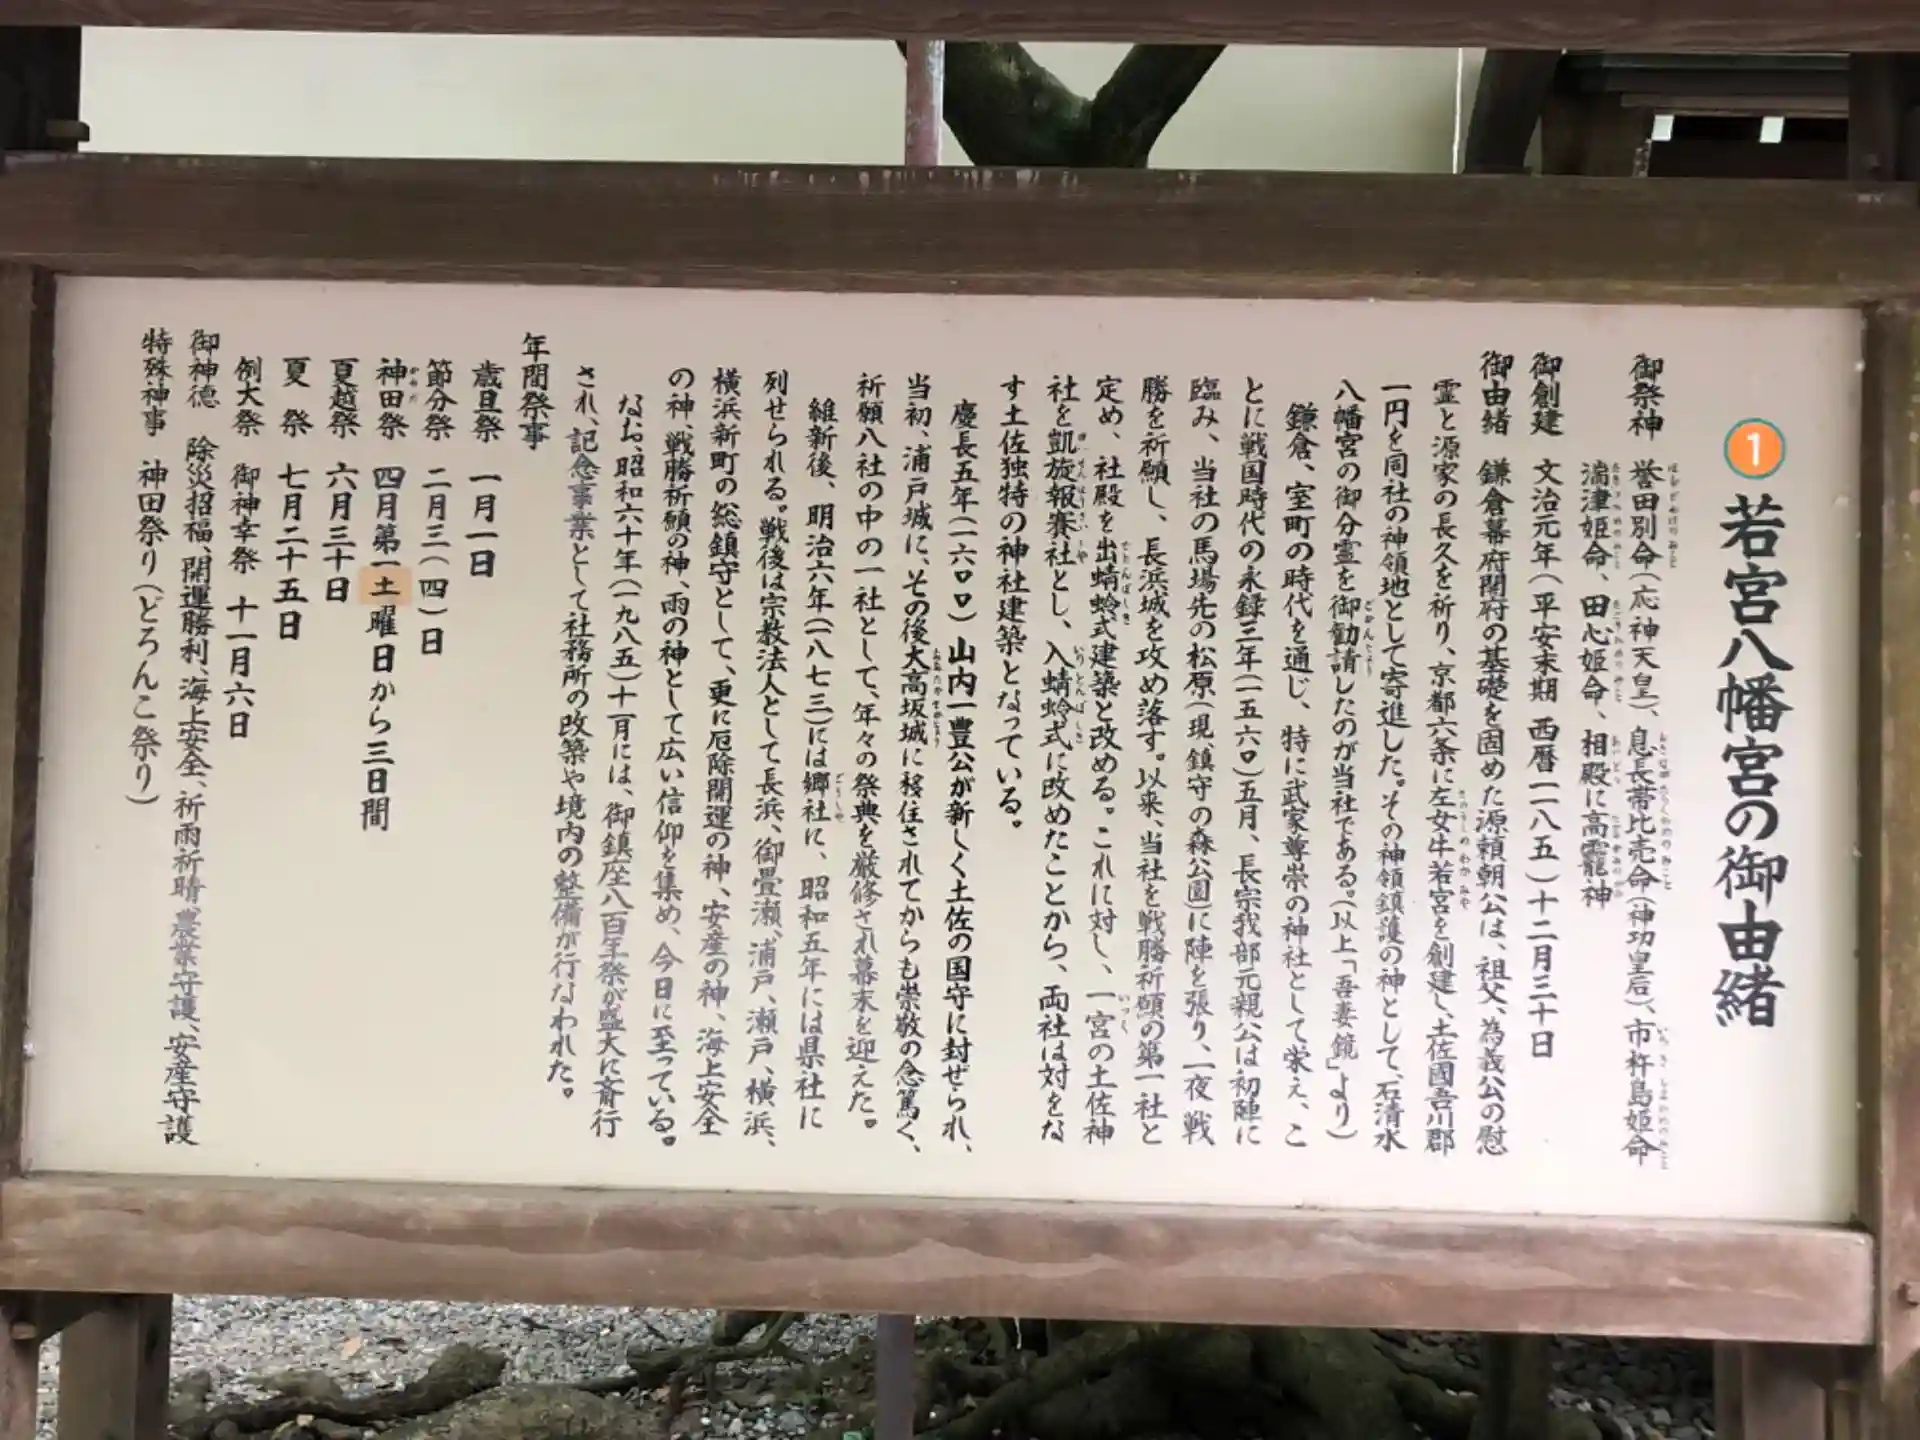 1 若宮八幡宮の御由緒
御祭神 誉田別命(応神天皇)、息長帯比売命(神功皇后)、市杵島姫命
湍津姫命、田心姫命、相殿に高龗神
御創建 文治元年(平安末期 西暦一一八五)十二月三十日
御由緒 鎌倉幕府開府の基礎を固めた源頼朝公は、祖父、為義公の慰
霊と源家の長久を祈り、京都六条に左女牛若宮を創建し、土佐國吾川郡
一円を同社の神領地として寄進した。その神領鎮護の神として、石清水
八幡宮の御分霊を御勧請したのが当社である。(以上「吾妻鏡」より)
鎌倉、室町の時代を通じ、特に武家尊崇の神社として栄え、こ
とに戦国時代の永録三年(一五六〇)五月、長宗我部元親公は初陣に
臨み、当社の馬場先の松原(現鎮守の森公園)に陣を張り、一夜戦
勝を祈願し、長浜城を攻め落す。以来、当社を戦勝祈願の第一社と
定め、社殿を出蜻蛉式建築と改める。これに対し、一宮の土佐神
社を凱旋報賽社とし、入蜻蛉式に改めたことから、両社は対をな
す土佐独特の神社建築となっている。
慶長五年(一六〇〇)山内一豊公が新しく土佐の国守に封ぜられ、
当初、浦戸城に、その後大高坂城に移住されてからも崇敬の念篤く、
祈願八社の中の一社として、年々の祭典を厳修され幕末を迎えた。
維新後、明治六年(一八七三)には郷社に、昭和五年には県社に
列せられる。戦後は宗教法人として長浜、御畳瀬、浦戸、瀬戸、横浜、
横浜新町の総鎮守として、更に厄除開運の神、安産の神、海上安全
の神、戦勝祈願の神、雨の神として広い信仰を集め、今日に至っている。
なお、昭和六十年(一九八五)十一月には、御鎮座八百年祭が盛大に斎行
され、記念事業として社務所の改築や境内の整備が行なわれた。
年間祭事
歳旦祭 一月一日
節分祭 二月三(四)日
神田祭 四月第一土曜日から三日間
夏越祭 六月三十日
夏祭 七月二十五日
例大祭 御神幸祭 十一月六日
御神徳 除災招福、開運勝利、海上安全、祈雨祈晴、農業守護、安産守護
特殊神事 神田祭り(どろんこ祭り)